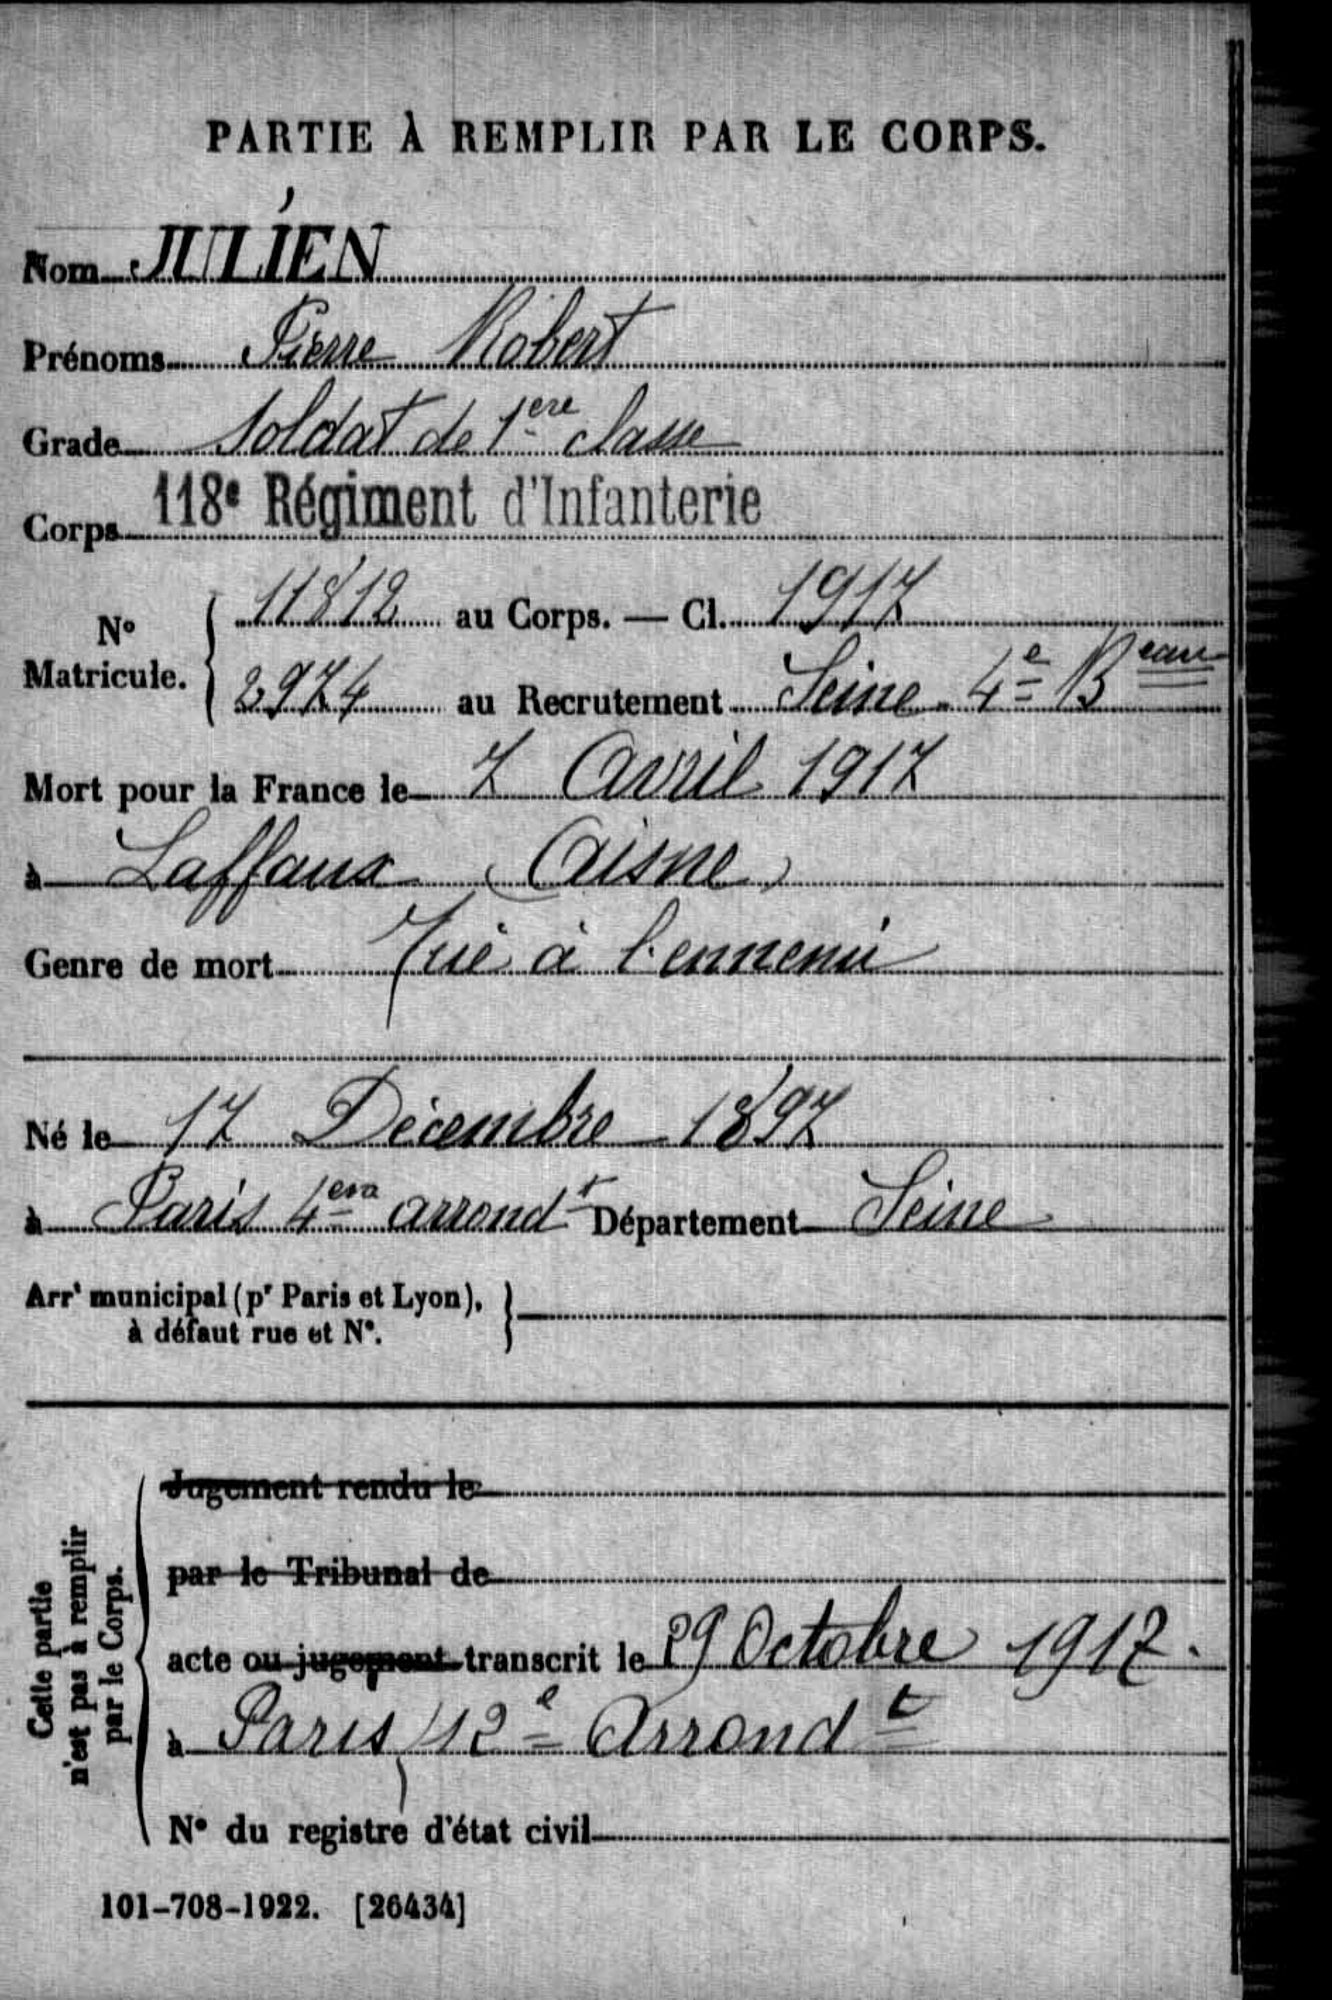 PARTIE À REMPLIR PAR LE CORPS.
Nom JULIEN
Prénoms Pierre Robert
Grade Soldat de 1ère classe
Corps 118e Régiment d'Infanterie
N° Matricule. 11812 au Corps. — Cl. 1917
2974 au Recrutement Seine 4e Beau
Mort pour la France le 7 Avril 1917
à Laffaux (Aisne)
Genre de mort Tué à l'ennemi
Né le 17 Décembre 1897
à Paris 4em arrondt Département Seine
Arrt municipal (pr Paris et Lyon),
à défaut rue et N°.
Cette partie
n'est pas à remplir
par le Corps.
Jugement rendu le
par le Tribunal de
acte ou jugement transcrit le 29 Octobre 1917.
à Paris, 12e Arrondt
N° du registre d'état civil
101-708-1922. [26434]